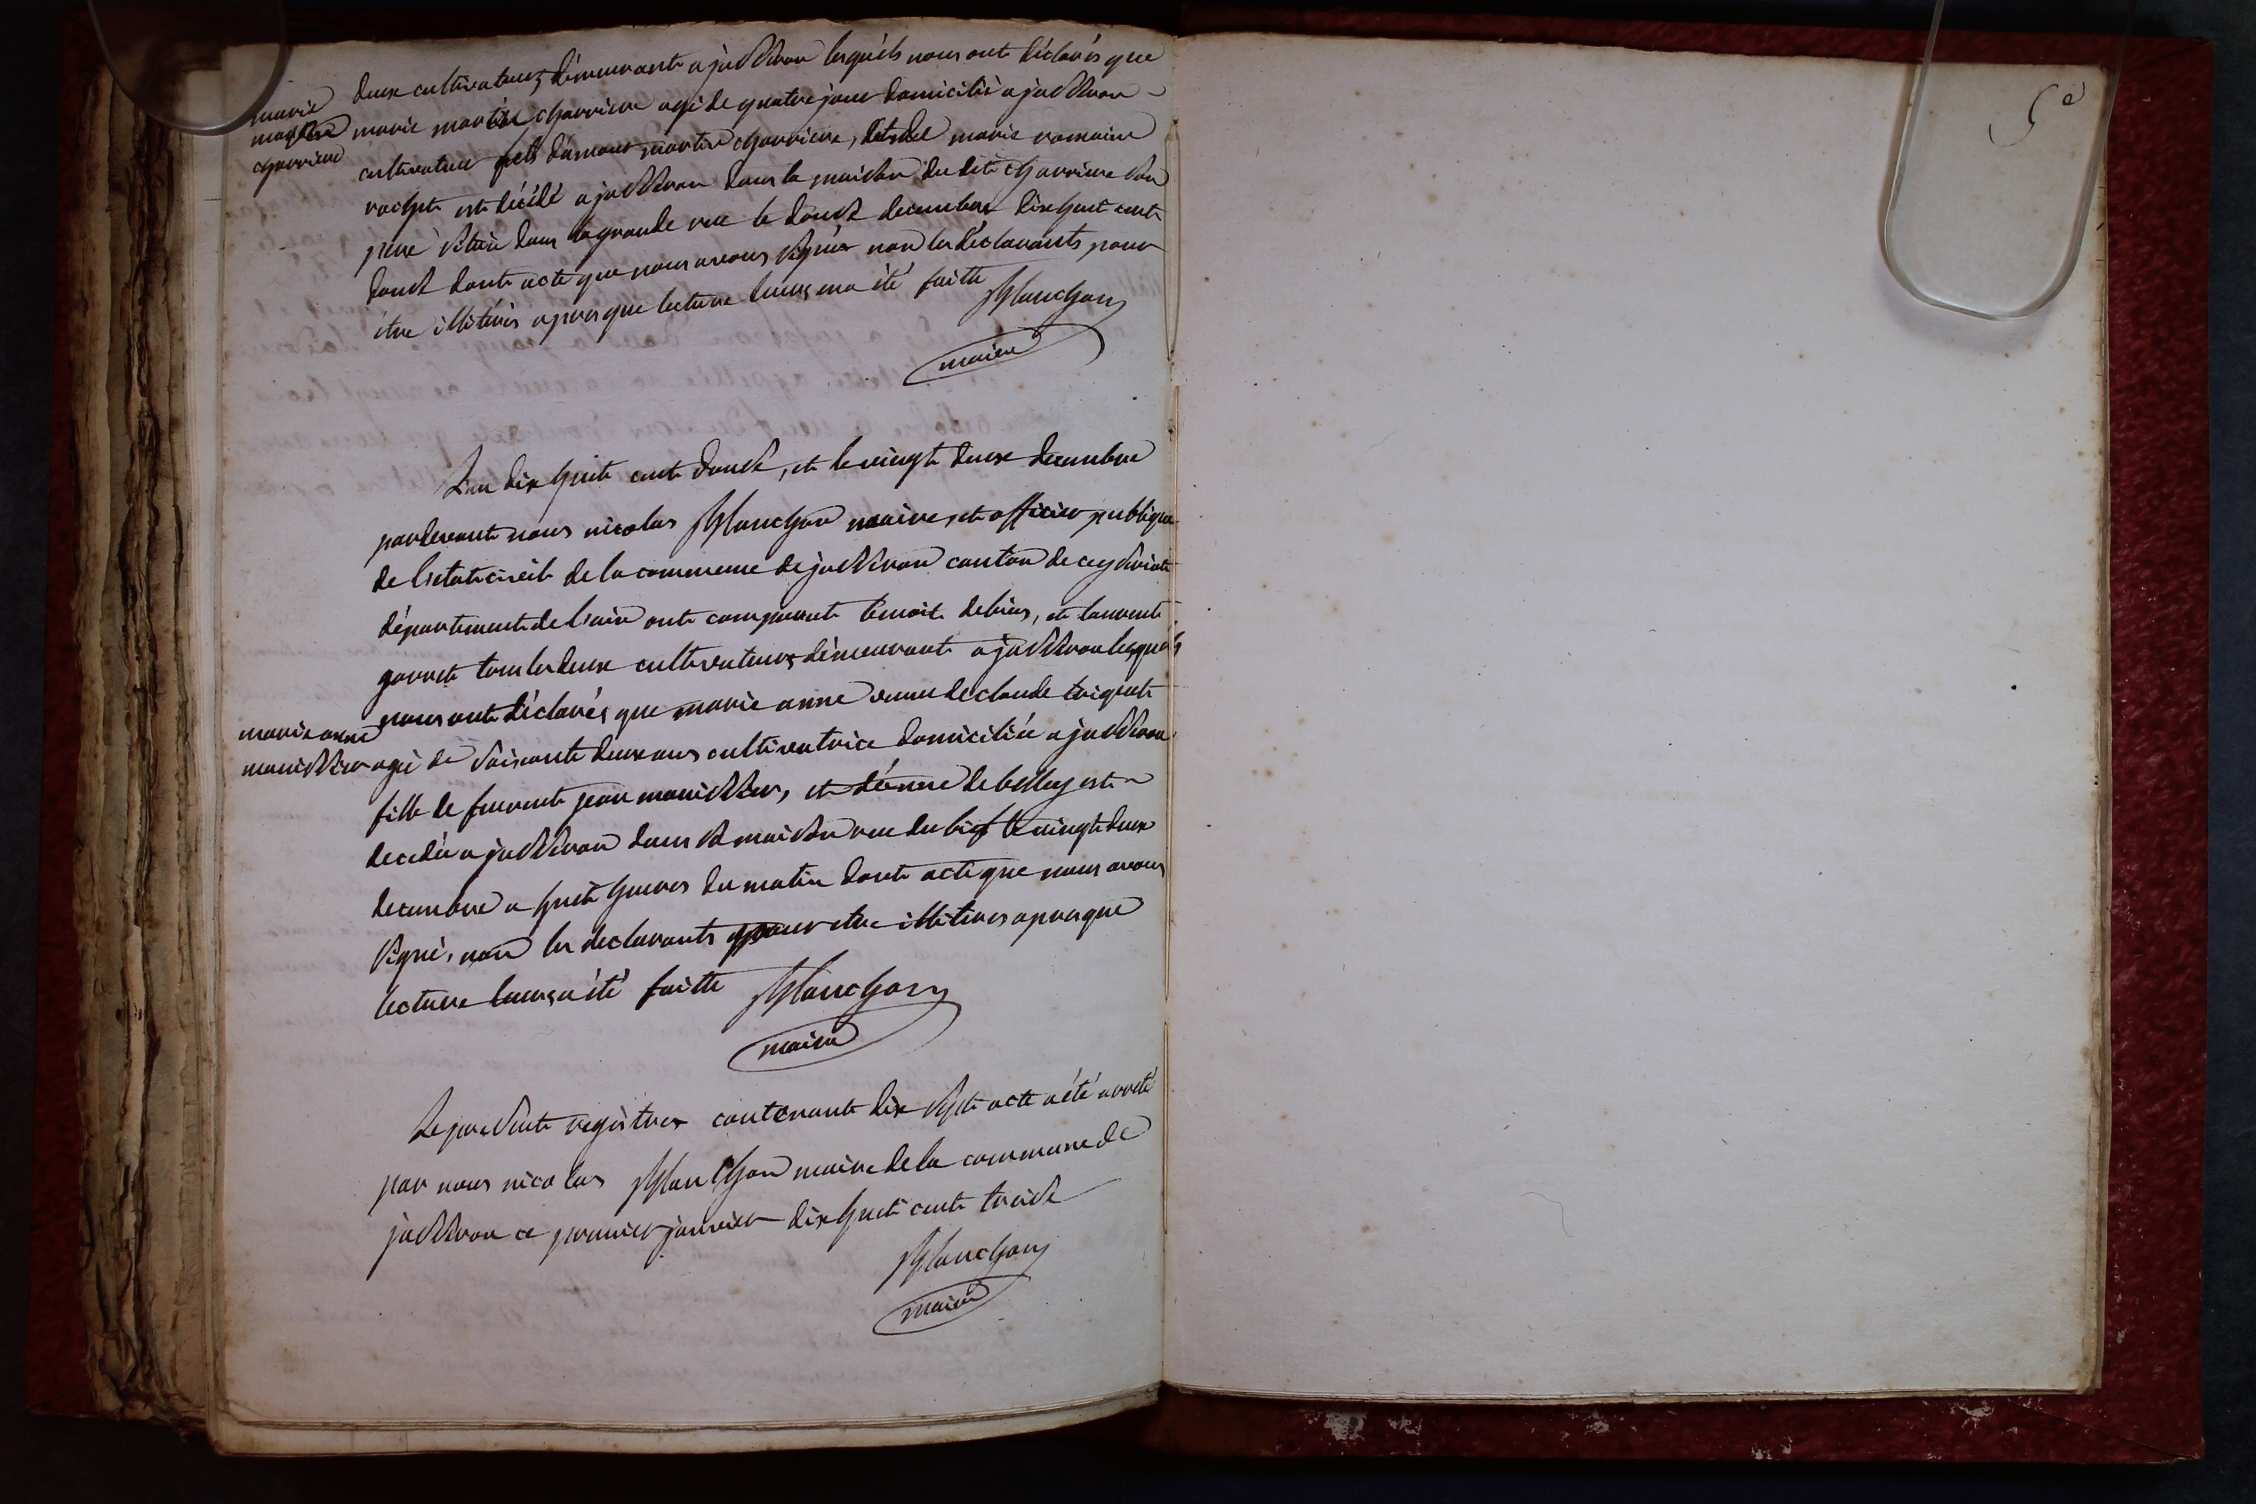 marie
martine
charriere
deux cultivateurs démeurant a jasseron lesquéls nous ont déclarés que
marie martine charriere agé de quatre jour domicilié a jasseron
cultivateur fille dâmour martin charriere, et de marie romaine
rochet est décédé a jasseron dans la maison du dit charriere son
pere situé dans la grande rue le douse decembre dix huit cent
douse dont acte que nous avons signér non les déclarants pour
étre illitérés apres que lecture leurs ena été faitte
Planchon
maire
L'an dix huit cent douse, et le vingt deux decembre
pardevant nous nicolas Planchon maire, et officier publique
de l'etat civil de la commune de jasseron canton de ceyseriat
département de l'ain ont comparut benoit debias, et laurent
garret tous les deux cultivateurs démeurant a jasseron lesquéls
nous ont déclarés que marie anne veuve de claude
marie anne
manissier
agé de soisante deux ans cultivatrice domiciliée a jasseron
fille de furent jean manissier, et dénne debellay est
decedée a jasseron dans sa maison rue du bief le vingt deux
decembre a huit heures du matin dont acte que nous avons
signé, non les declarants pour etre illiteres apres que
lecture leurs a été faitte Planchon
maire
Le present registrer contenant dix sept acte a été arreté
par nous nicolas Planchon maire de la commune de
jasseron ce premier janvier dix huit cent treise
Planchon
maire
5e